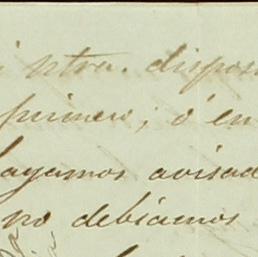 ntra. dispos
primero; ó en
hayamos avisad
no debiamos